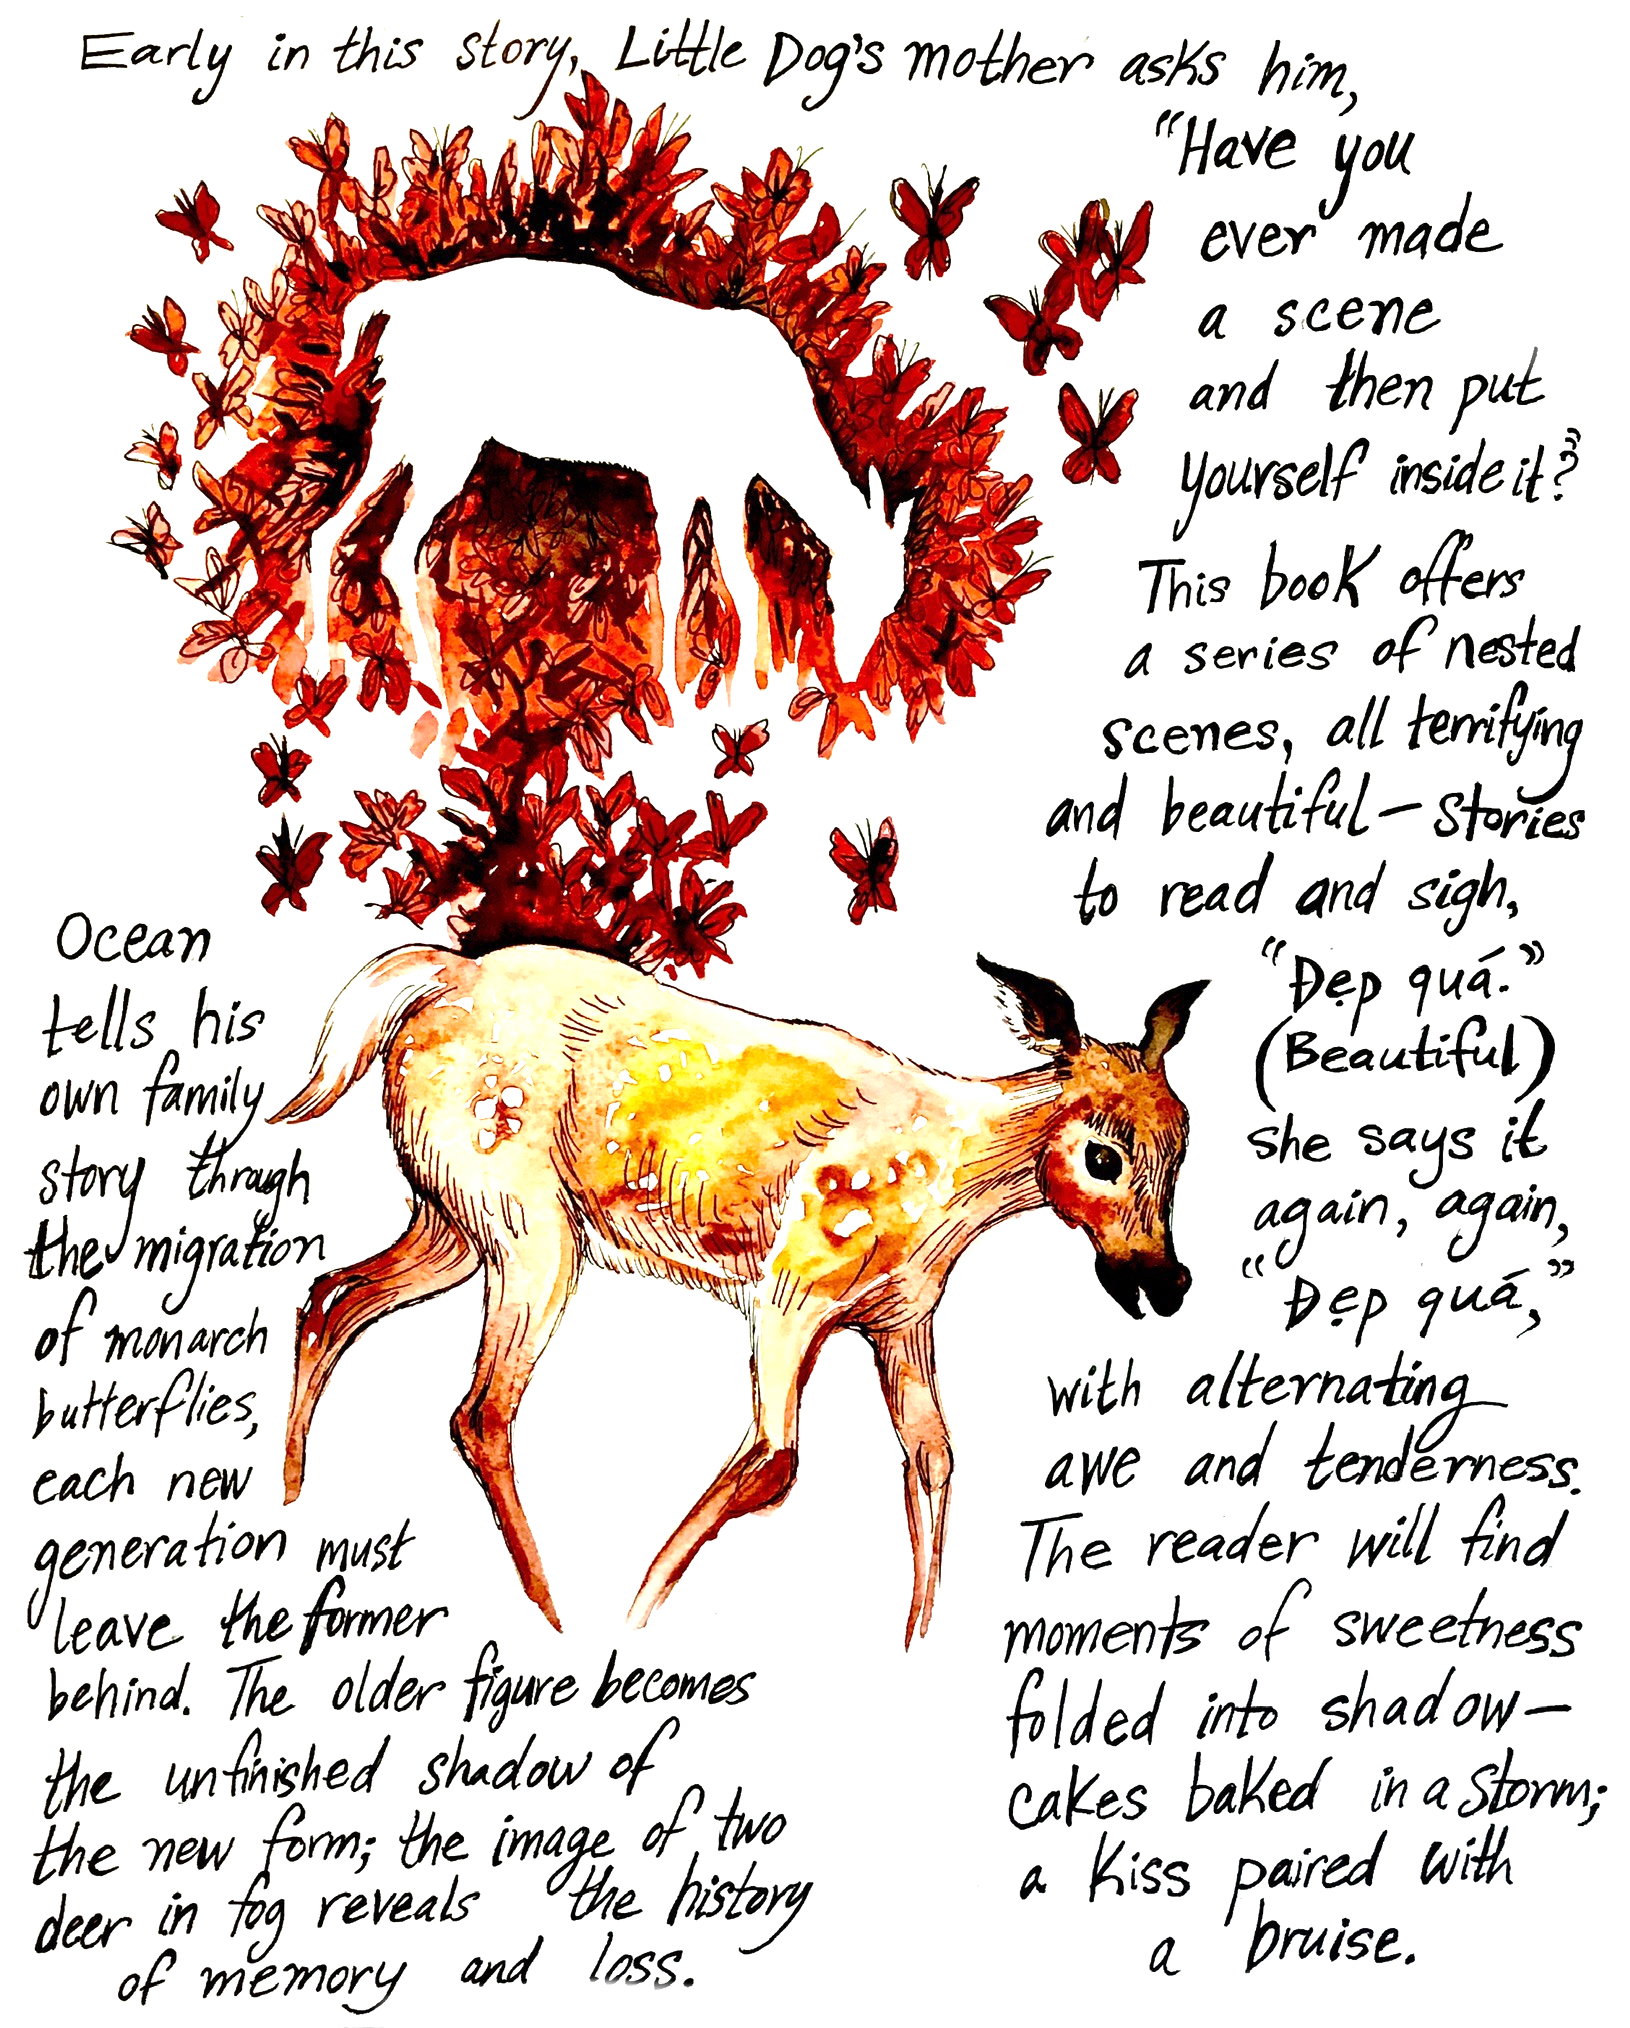 Early in this story, Little Dog's mother asks him,
"Have you
ever made
a scene
and then put
yourself inside it?"
This book offers
a series of nested
scenes, all terrifying
and beautiful — stories
to read and sigh,
"Đẹp quá."
(Beautiful)
she says it
again, again,
"Đẹp quá,"
with alternating
awe and tenderness.
The reader will find
moments of sweetness
folded into shadow —
cakes baked in a storm;
a kiss paired with
a bruise.
Ocean
tells his
own family
story through
the migration
of monarch
butterflies,
each new
generation must
leave the former
behind. The older figure becomes
the unfinished shadow of
the new form; the image of two
deer in fog reveals the history
of memory and loss.